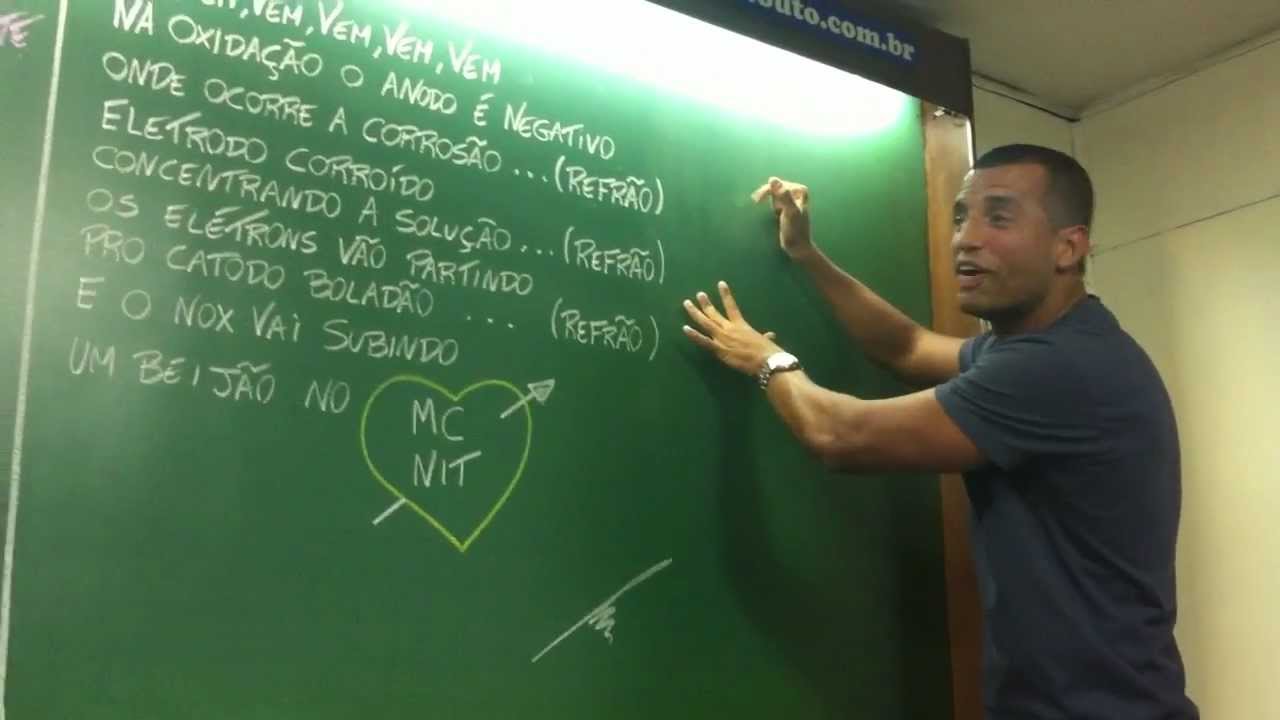 VEM, VEM, VEM, VEM
NA OXIDAÇÃO O ANODO É NEGATIVO
ONDE OCORRE A CORROSÃO ... (REFRÃO)
ELETRODO CORROÍDO
CONCENTRANDO A SOLUÇÃO ... (REFRÃO)
OS ELÉTRONS VÃO PARTINDO
PRO CATODO BOLADÃO .... (REFRÃO)
E O NOX VAI SUBINDO
UM BEIJÃO NO
MC
NIT